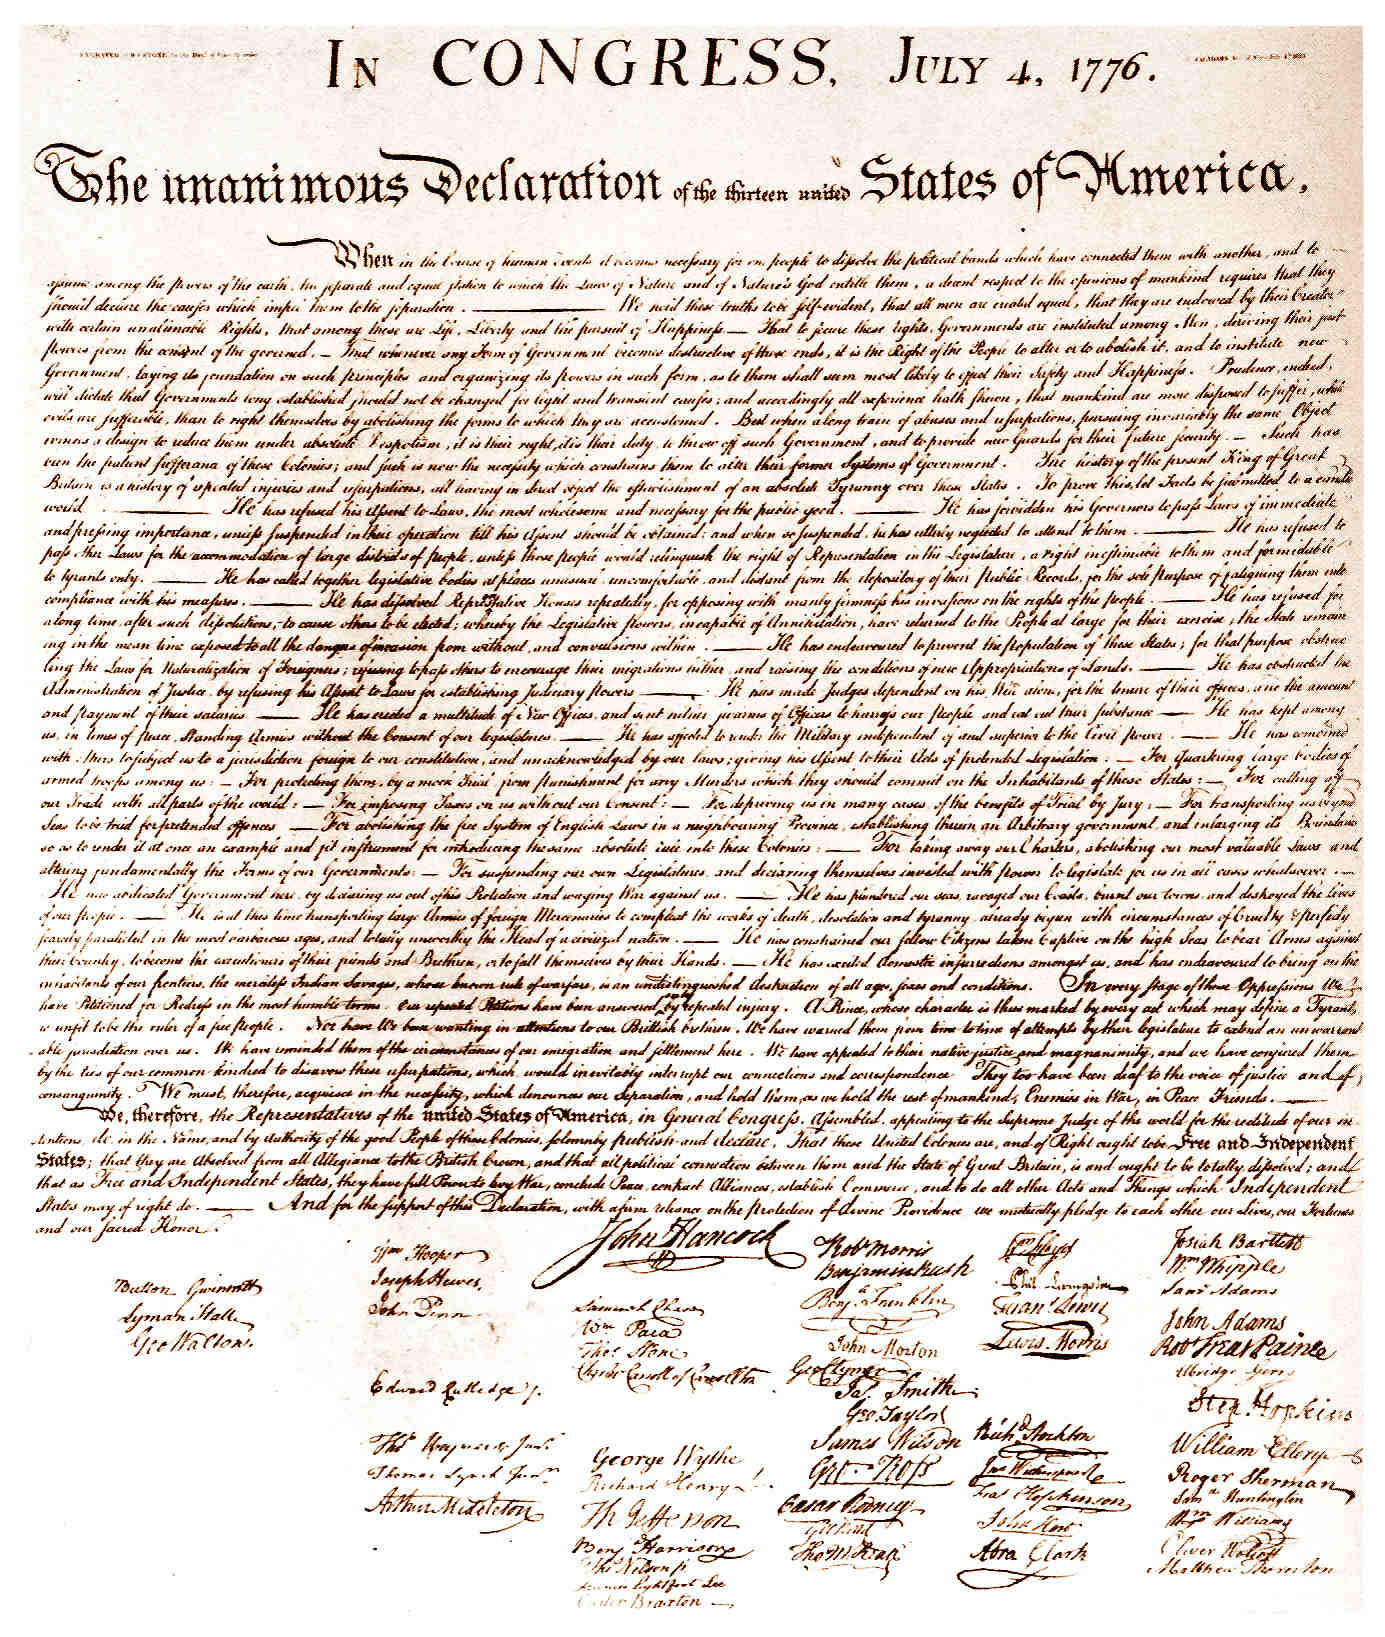 In CONGRESS, July 4, 1776.
The unanimous Declaration of the thirteen united States of America.
When in the Course of human Events it becomes necessary for one people to dissolve the political bands which have connected them with another, and to
assume among the powers of the earth, the separate and equal station to which the Laws of Nature and of Nature's God entitle them, a decent respect to the opinions of mankind requires that they
should declare the causes which impel them to the separation. — We hold these truths to be self-evident, that all men are created equal, that they are endowed by their Creator
with certain unalienable Rights, that among these are Life, Liberty and the pursuit of Happiness — That to secure these rights, Governments are instituted among Men, deriving their just
powers from the consent of the governed, — That whenever any Form of Government becomes destructive of these ends, it is the Right of the People to alter or to abolish it, and to institute new
Government, laying its foundation on such principles and organizing its powers in such form, as to them shall seem most likely to effect their Safety and Happiness. Prudence, indeed,
will dictate that Governments long established should not be changed for light and transient causes; and accordingly all experience hath shewn, that mankind are more disposed to suffer, while
evils are sufferable, than to right themselves by abolishing the forms to which they are accustomed. But when a long train of abuses and usurpations, pursuing invariably the same Object
evinces a design to reduce them under absolute Despotism, it is their right, it is their duty, to throw off such Government, and to provide new Guards for their future security. — Such has
been the patient sufferance of these Colonies; and such is now the necessity which constrains them to alter their former Systems of Government. The history of the present King of Great
Britain is a history of repeated injuries and usurpations, all having in direct object the establishment of an absolute Tyranny over these States. To prove this, let Facts be submitted to a candid
world. — He has refused his Assent to Laws, the most wholesome and necessary for the public good. — He has forbidden his Governors to pass Laws of immediate
and pressing importance, unless suspended in their operation till his Assent should be obtained; and when so suspended, he has utterly neglected to attend to them. — He has refused to
pass other Laws for the accommodation of large districts of people, unless those people would relinquish the right of Representation in the Legislature, a right inestimable to them and formidable
to tyrants only. — He has called together legislative bodies at places unusual, uncomfortable, and distant from the depository of their Public Records, for the sole purpose of fatiguing them into
compliance with his measures. — He has dissolved Representative Houses repeatedly, for opposing with manly firmness his invasions on the rights of the people. — He has refused for
a long time, after such dissolutions, to cause others to be elected; whereby the Legislative powers, incapable of Annihilation, have returned to the People at large for their exercise; the State remain
ing in the mean time exposed to all the dangers of invasion from without, and convulsions within. — He has endeavoured to prevent the population of these States; for that purpose obstruc
ting the Laws for Naturalization of Foreigners; refusing to pass others to encourage their migrations hither, and raising the conditions of new Appropriations of Lands. — He has obstructed the
Administration of Justice, by refusing his Assent to Laws for establishing Judiciary powers — He has made Judges dependent on his Will alone, for the tenure of their offices, and the amount
and payment of their salaries. — He has erected a multitude of New Offices, and sent hither swarms of Officers to harrass our People, and eat out their substance — He has kept among
us, in times of peace, Standing Armies without the Consent of our legislatures. — He has affected to render the Military independent of and superior to the Civil power. — He has combined
with others to subject us to a jurisdiction foreign to our constitution, and unacknowledged by our laws; giving his Assent to their Acts of pretended Legislation: — For Quartering large bodies of
armed troops among us: — For protecting them, by a mock Trial from punishment for any Murders which they should commit on the Inhabitants of these States: — For cutting off
our Trade with all parts of the world: — For imposing Taxes on us without our Consent: — For depriving us in many cases, of the benefits of Trial by Jury: — For transporting us beyond
Seas to be tried for pretended offences — For abolishing the free System of English Laws in a neighbouring Province, establishing therein an Arbitrary government, and enlarging its Boundaries
so as to render it at once an example and fit instrument for introducing the same absolute rule into these Colonies: — For taking away our Charters, abolishing our most valuable Laws and
altering fundamentally the Forms of our Governments: — For suspending our own Legislatures, and declaring themselves invested with power to legislate for us in all cases whatsoever. —
He has abdicated Government here, by declaring us out of his Protection and waging War against us. — He has plundered our seas, ravaged our Coasts, burnt our towns, and destroyed the lives
of our people. — He is at this time transporting large Armies of foreign Mercenaries to compleat the works of death, desolation and tyranny, already begun with circumstances of Cruelty & perfidy
scarcely paralleled in the most barbarous ages, and totally unworthy the Head of a civilized nation. — He has constrained our fellow Citizens taken Captive on the high Seas to bear Arms against
their Country, to become the executioners of their friends and Brethren, or to fall themselves by their Hands. — He has excited domestic insurrections amongst us, and has endeavoured to bring on the
inhabitants of our frontiers, the merciless Indian Savages, whose known rule of warfare, is an undistinguished destruction of all ages, sexes and conditions. In every stage of these Oppressions We
have Petitioned for Redress in the most humble terms: Our repeated Petitions have been answered only by repeated injury. A Prince, whose character is thus marked by every act which may define a Tyrant,
is unfit to be the ruler of a free People. Nor have We been wanting in attentions to our Brittish brethren. We have warned them from time to time of attempts by their legislature to extend an unwarrant
able jurisdiction over us. We have reminded them of the circumstances of our emigration and settlement here. We have appealed to their native justice and magnanimity, and we have conjured them
by the ties of our common kindred to disavow these usurpations, which would inevitably interrupt our connections and correspondence They too have been deaf to the voice of justice and of
consanguinity. We must, therefore, acquiesce in the necessity, which denounces our Separation, and hold them, as we hold the rest of mankind, Enemies in War, in Peace Friends. —
We, therefore, the Representatives of the united States of America, in General Congress, Assembled, appealing to the Supreme Judge of the world for the rectitude of our in
tentions, do, in the Name, and by Authority of the good People of these Colonies, solemnly publish and declare, That these United Colonies are, and of Right ought to be Free and Independent
States; that they are Absolved from all Allegiance to the British Crown, and that all political connection between them and the State of Great Britain, is and ought to be totally dissolved; and
that as Free and Independent States, they have full Power to levy War, conclude Peace, contract Alliances, establish Commerce, and to do all other Acts and Things which Independent
States may of right do. — And for the support of this Declaration, with a firm reliance on the protection of divine Providence we mutually pledge to each other our Lives, our Fortunes
and our sacred Honor.
Button Gwinnett
Lyman Hall
Geo Walton.
Wm Hooper
Joseph Hewes,
John Penn
Edward Rutledge
Thos Heyward Junr
Thomas Lynch Junr
Arthur Middleton
John Hancock
Samuel Chase
Wm Paca
Thos Stone
Charles Carroll of Carrollton
George Wythe
Richard Henry Lee
Th Jefferson
Benj Harrison
Thos Nelson jr
Francis Lightfoot Lee
Carter Braxton
Robt Morris
Benjamin Rush
Benj Franklin
John Morton
Geo Clymer
Jas Smith
Geo Taylor
James Wilson
Geo Ross
Caesar Rodney
Geo Read
Tho M:Kean
Wm Floyd
Phil. Livingston
Frans Lewis
Lewis Morris
Richd Stockton
Jno Witherspoon
Fras Hopkinson
John Hart
Abra Clark
Josiah Bartlett
Wm Whipple
Saml Adams
John Adams
Robt Treat Paine
Elbridge Gerry
Step. Hopkins
William Ellery
Roger Sherman
Saml Huntington
Wm Williams
Oliver Wolcott
Matthew Thornton